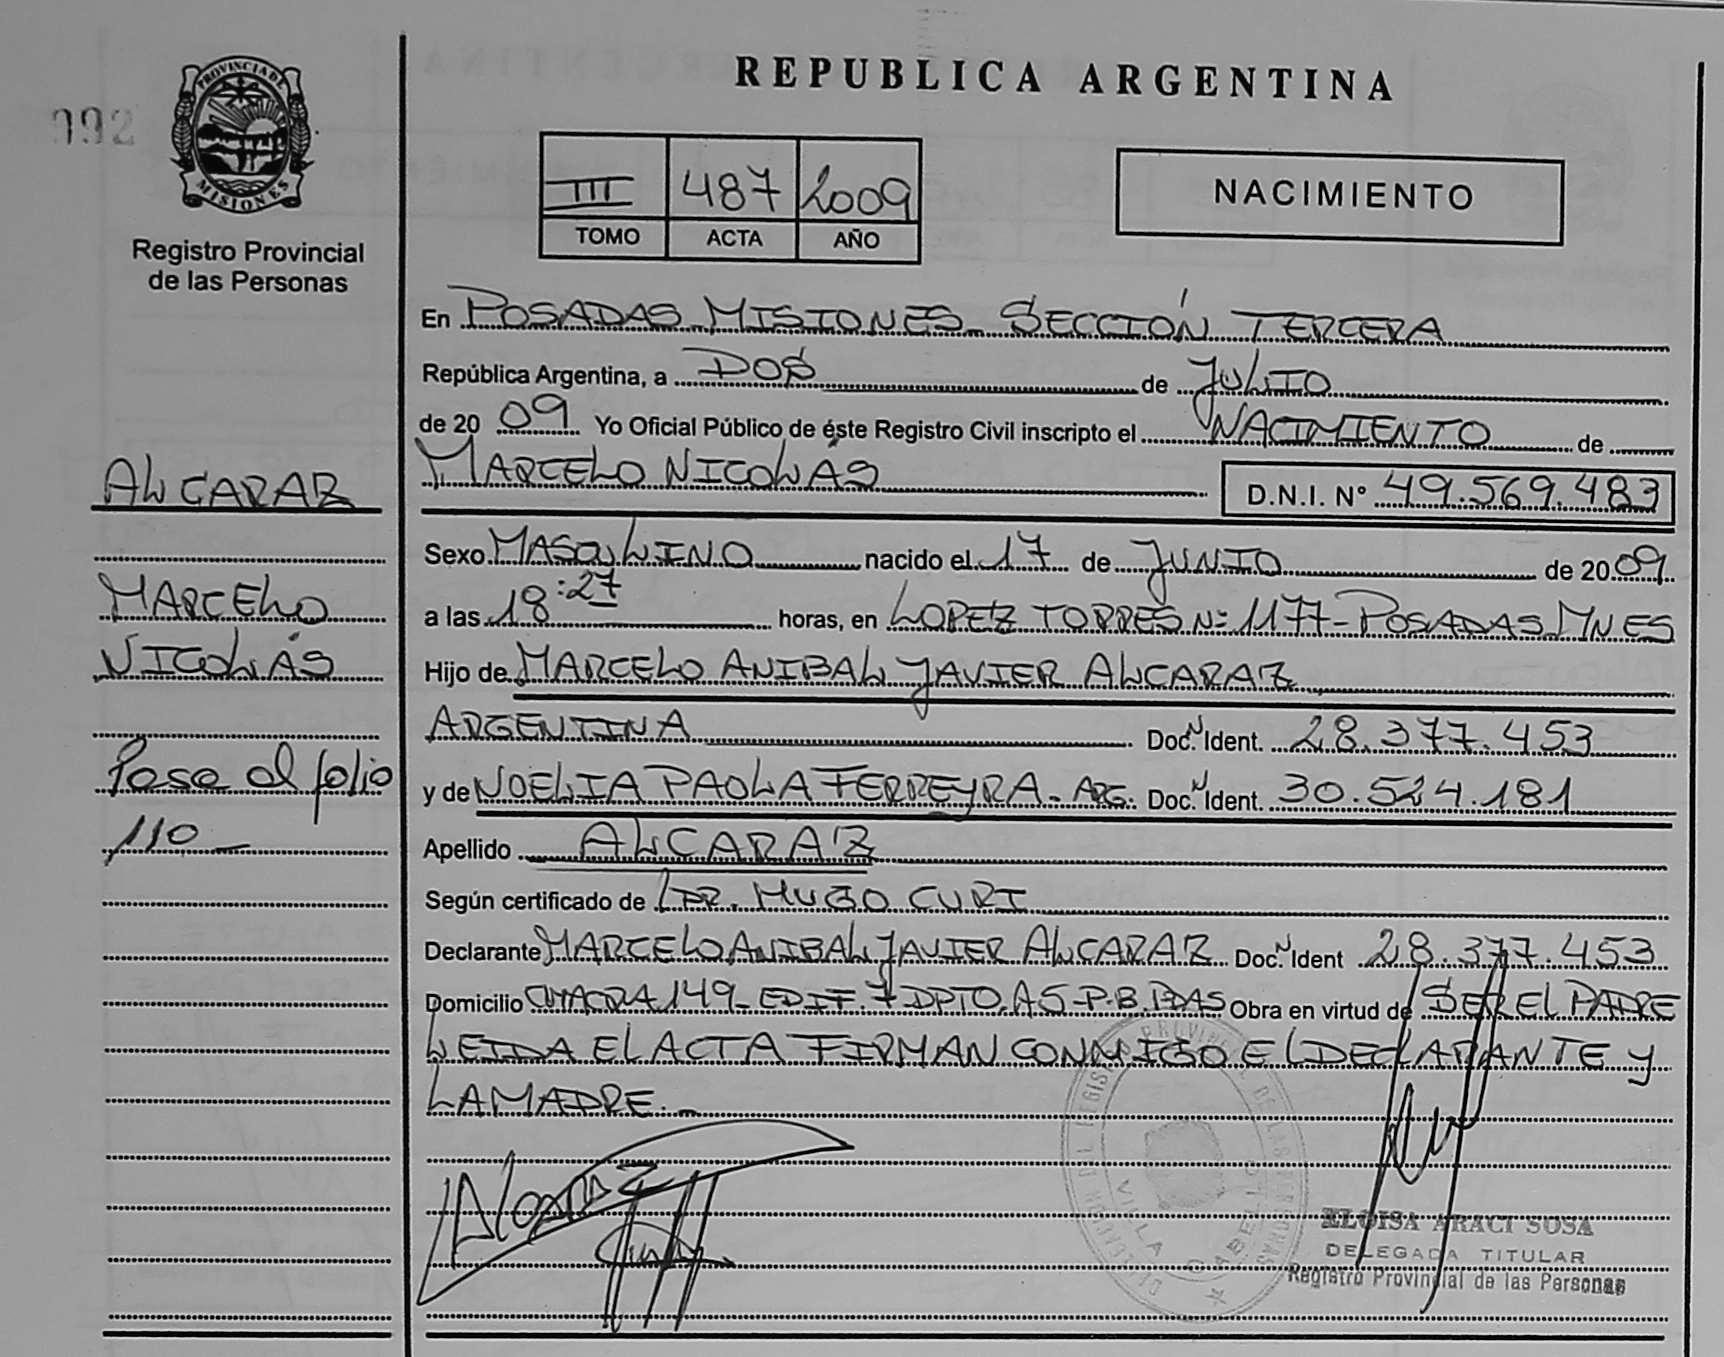 092
PROVINCIA DE
MISIONES
Registro Provincial
de las Personas
REPUBLICA ARGENTINA
III 487 2009
TOMO ACTA AÑO
NACIMIENTO
En POSADAS MISIONES SECCIÓN TERCERA
República Argentina, a DOS de JULIO
de 20 09 Yo Oficial Público de éste Registro Civil inscripto el NACIMIENTO de
MARCELO NICOLÁS D.N.I. Nº 49.569.483
Sexo MASCULINO nacido el 17 de JUNIO de 20 09
a las 18:27 horas, en LOPEZ TORRES Nº 1177-POSADAS MNES
Hijo de MARCELO ANIBAL JAVIER ALCARAZ
ARGENTINA Doc. N Ident. 28.377.453
y de NOELIA PAOLA FERREYRA. ARG. Doc. N Ident. 30.524.181
Apellido ALCARAZ
Según certificado de DR. HUGO CURI
Declarante MARCELO ANIBAL JAVIER ALCARAZ Doc. N Ident 28.377.453
Domicilio CHACRA 149-EDIF. 7 DPTO. A5-P.B. PDAS Obra en virtud de SER EL PADRE
LEIDA EL ACTA FIRMAN CONMIGO EL DECLARANTE Y
LA MADRE.-
ALCARAZ
MARCELO
NICOLÁS
Pasa al folio
110-
Alcaraz
VILLA CABELLO
ELOISA ARACI SOSA
DELEGADA TITULAR
Registro Provincial de las Personas